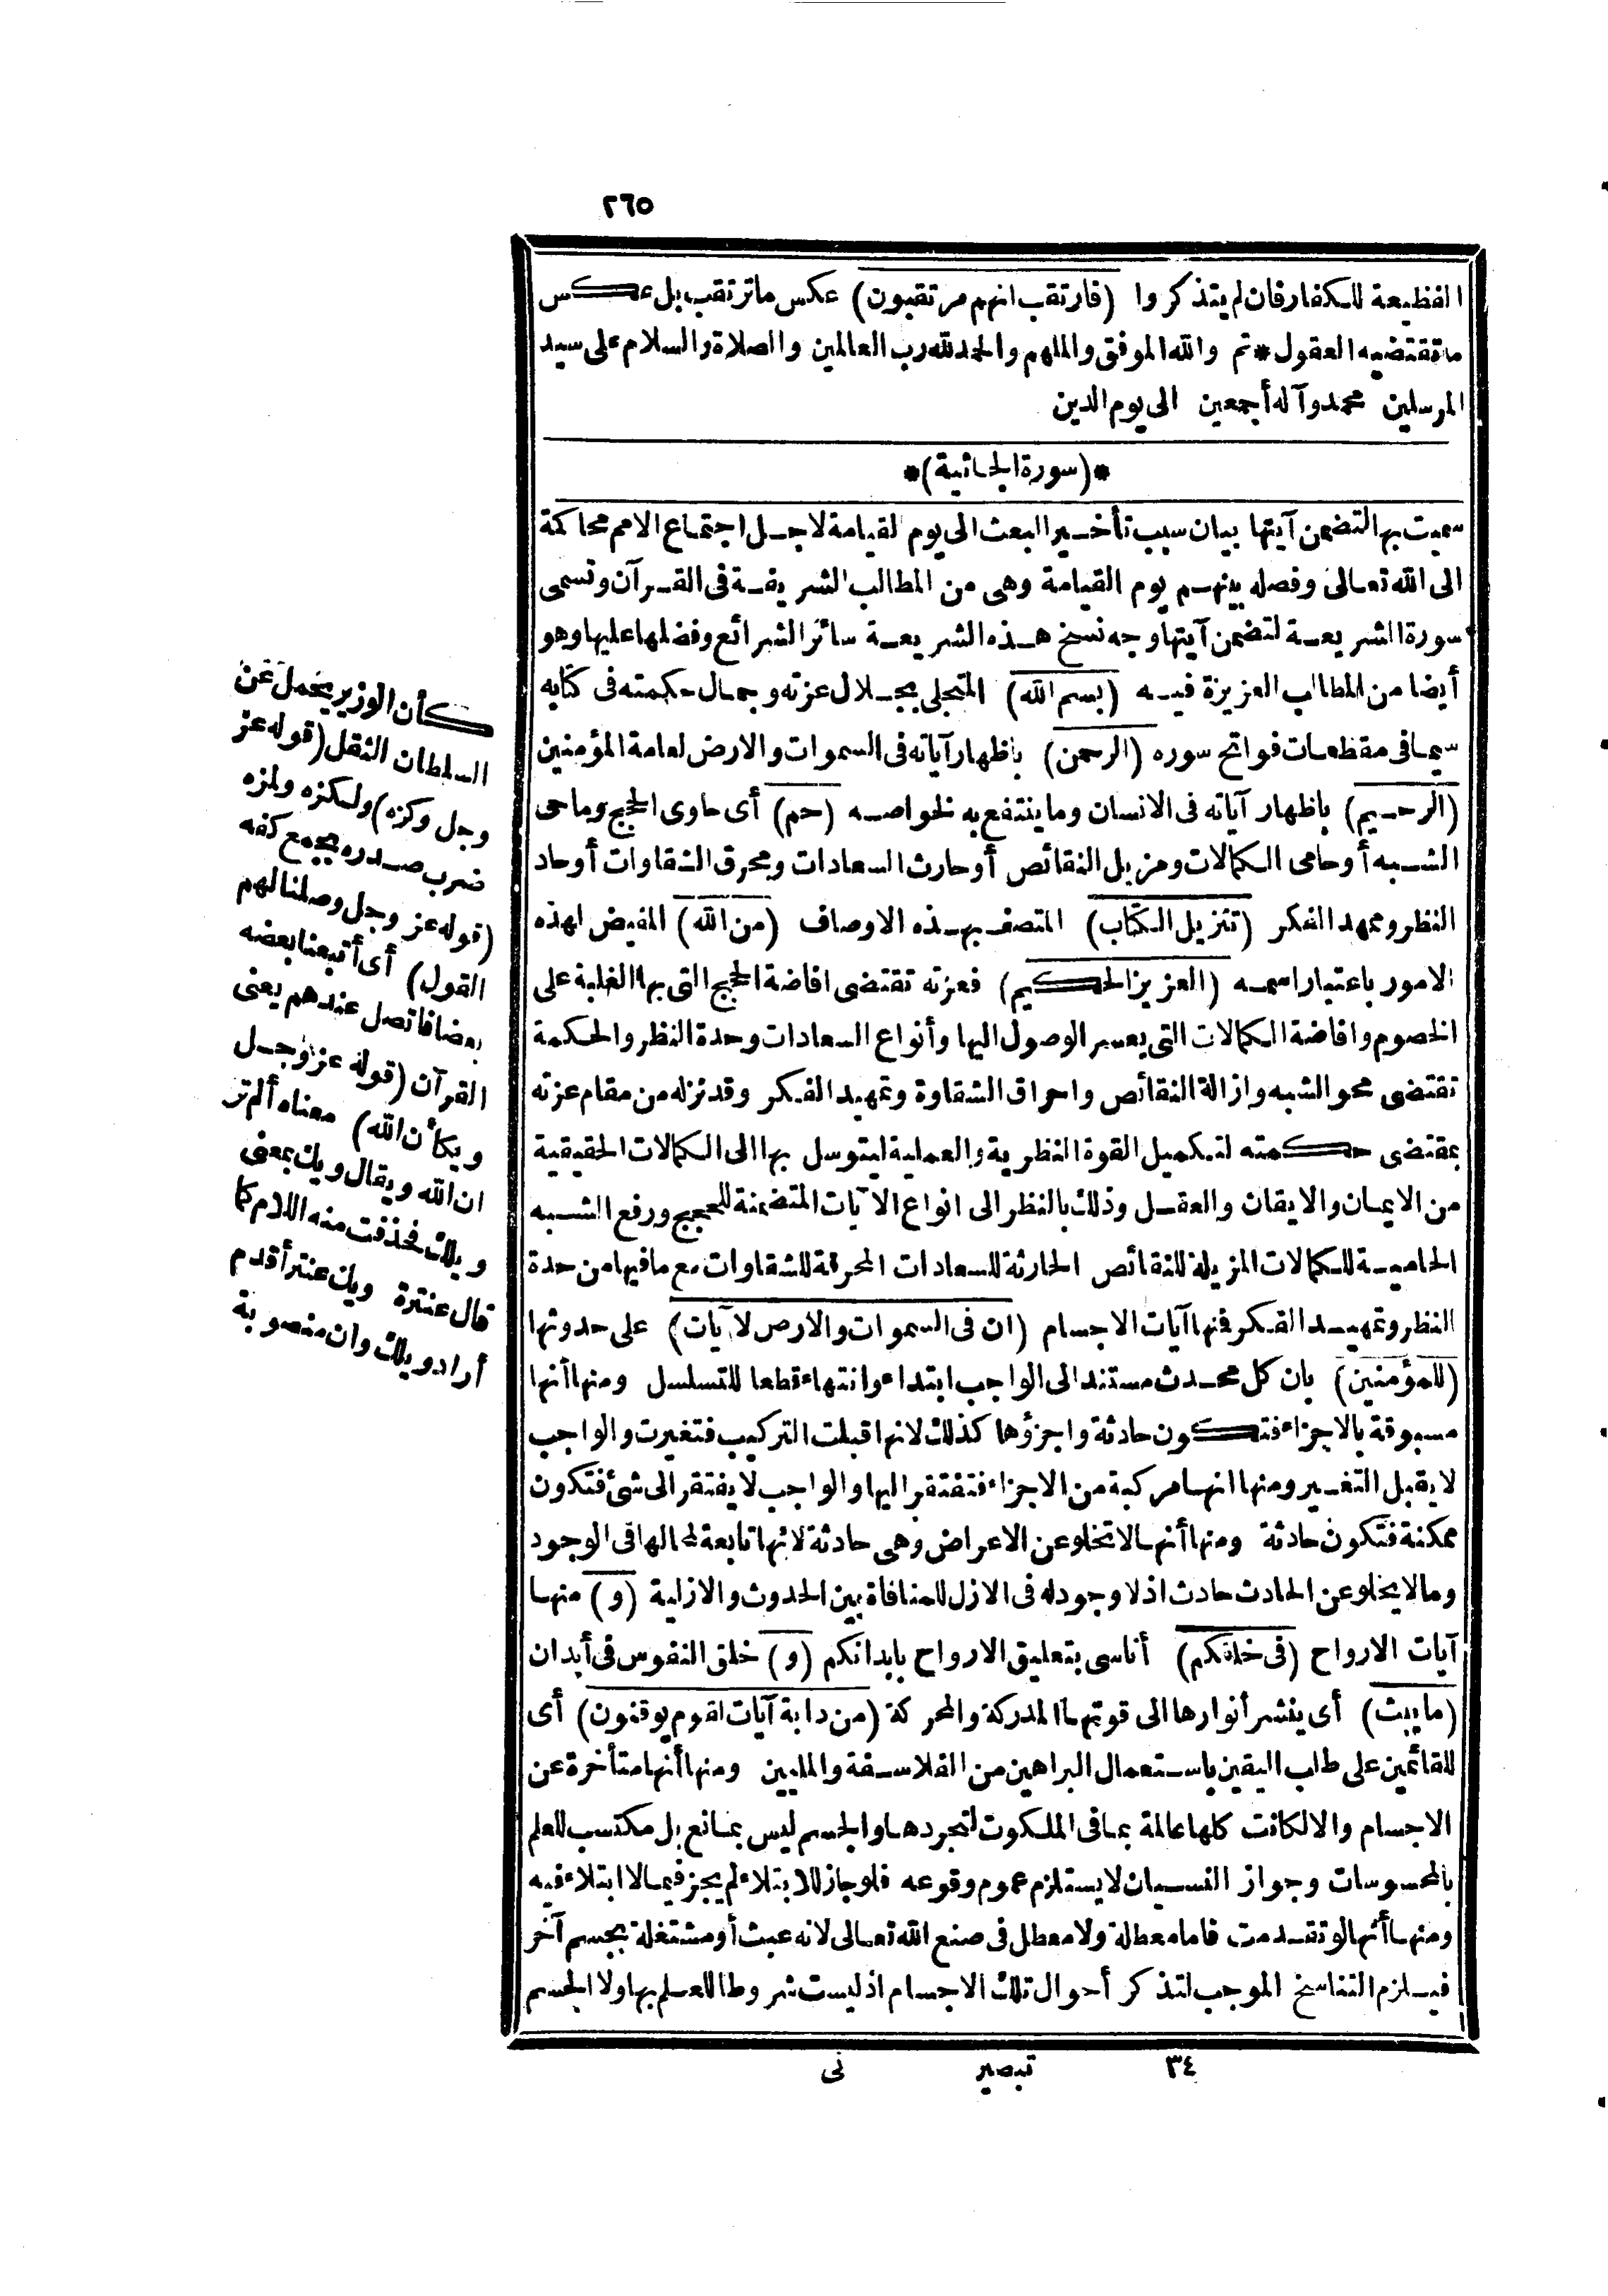 ٢٦٥
الفظيعة للكفار فان لم يتذكروا (فارتقب انهم مرتقبون) عكس ما ترتقب بل عكس
ما تقتضيه العقول * تم والله الموفق والملهم والحمد لله رب العالمين والصلاة والسلام على سيد
المرسلين محمد وآله أجمعين الى يوم الدين
*(سورة الجاثية)*
سميت بها لتضمن آيتها بيان سبب تأخير البعث الى يوم القيامة لاجل اجتماع الامم محاكمة
الى الله تعالى وفصله بينهم يوم القيامة وهى من المطالب الشريفة فى القرآن وتسمى
سورة الشريعة لتضمن آيتها وجه نسخ هذه الشريعة سائر الشرائع وفضلها عليها وهو
أيضا من المطالب العزيزة فيه (بسم الله) المتجلى بجلال عزته وجمال حكمته فى كتابه
سيما فى مقطعات فواتح سوره (الرحمن) باظهار آياته فى السموات والارض لعامة المؤمنين
(الرحيم) باظهار آياته فى الانسان وما ينتفع به لخواصه (حم) أى حاوى الحجج وماحى
الشبه أو حامى الكمالات ومزيل النقائص أو حارث السعادات ومحرق الشقاوات أو حاد
النظر وممهد الفكر (تنزيل الكتاب) المتصف بهذه الاوصاف (من الله) المفيض لهذه
الامور باعتبار اسمه (العزيز الحكيم) فعزته تقتضى افاضة الحجج التى بها الغلبة على
الخصوم وافاضة الكمالات التى يعسر الوصول اليها وأنواع السعادات وحدة النظر والحكمة
تقتضى محو الشبه وازالة النقائص واحراق الشقاوة وتمهيد الفكر وقد نزله من مقام عزته
بمقتضى حكمته لتكميل القوة النظرية والعملية ليتوسل بها الى الكمالات الحقيقية
من الايمان والايقان والعقل وذلك بالنظر الى انواع الآيات المتضمنة للحجج ورفع الشبه
الحامية للكمالات المزيلة للنقائص الحارثة للسعادات المحرقة للشقاوات مع ما فيها من حدة
النظر وتمهيد الفكر فنها آيات الاجسام (ان فى السموات والارض لآيات) على حدوثها
(للمؤمنين) بان كل محدث مستند الى الواجب ابتداء وانتهاء قطعا للتسلسل ومنها أنها
مسبوقة بالاجزاء فتكون حادثة واجزؤها كذلك لانها قبلت التركيب فتغيرت والواجب
لا يقبل التغير ومنها انها مركبة من الاجزاء فتفتقر اليها والواجب لا يفتقر الى شئ فتكون
ممكنة فتكون حادثة ومنها أنها لا تخلو عن الاعراض وهى حادثة لانها تابعة لمحالها فى الوجود
وما لا يخلو عن الحادث حادث اذ لا وجود له فى الازل للمنافاة بين الحدوث والازلية (و) منها
آيات الارواح (فى خلقكم) أناسى بتعليق الارواح بابدانكم (و) خلق النفوس فى أبدان
(ما يبث) أى ينشر أنوارها الى قوتها المدركة والمحركة (من دابة آيات لقوم يوقنون) أى
للقائمين على طلب اليقين باستعمال البراهين من الفلاسفة والمليين ومنها أنها متأخرة عن
الاجسام والا لكانت كلها عالمة بما فى الملكوت لتجردها والجسم ليس بمانع بل مكتسب للعلم
بالمحسوسات وجواز النسيان لا يستلزم عموم وقوعه فلو جاز للابتلاء لم يجز فيما لا ابتلاء فيه
ومنها أنها لو تقدمت فاما معطلة ولا معطل فى صنع الله تعالى لانه عبث أو مشتغلة بجسم آخر
فيلزم التناسخ الموجب لتذكر أحوال تلك الاجسام اذ ليست شروطا للعلم بها ولا الجسم
٣٤ تبصير نى
كأن الوزير يحمل عن
السلطان الثقل (قوله عز
وجل وكزه) ولكزه ولمزه
ضرب صدره بجمع كفه
(قوله عز وجل وصلنا لهم
القول) أى أتبعنا بعضه
بعضا فاتصل عندهم يعنى
القرآن (قوله عز وجل
ويكأن الله) معناه ألم تر
ان الله ويقال ويك بمعنى
ويلك فحذفت منه اللام كما
قال عنترة ويك عنتر أقدم
أراد ويلك وان منصوبة